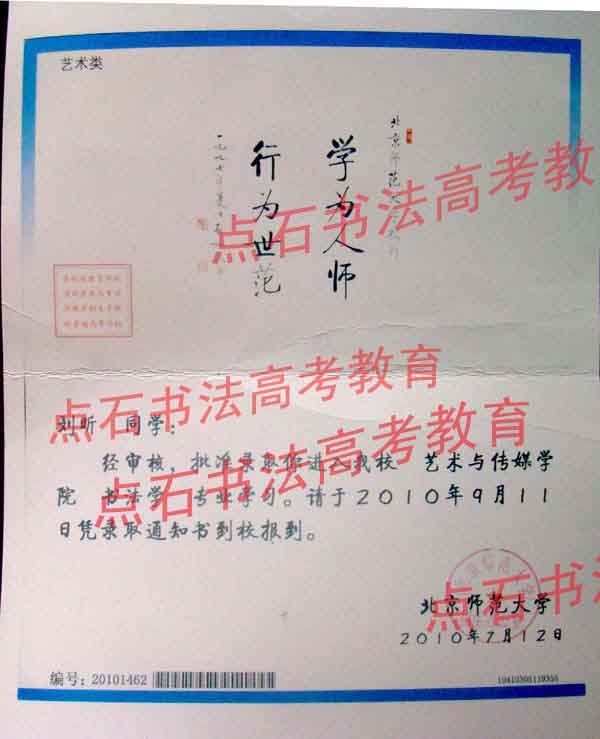 艺术类
北京师范大学
学为人师
行为世范
一九九七年夏日
点石书法高考教育
点石书法高考教育
刘昕 同学：
点石书法高考教育
经审核，批准录取你进入我校 艺术与传媒学
院 书法学 专业学习。请于2010年9月11
日凭录取通知书到校报到。
点石书法
北京师范大学
2010年7月12日
编号：20101462